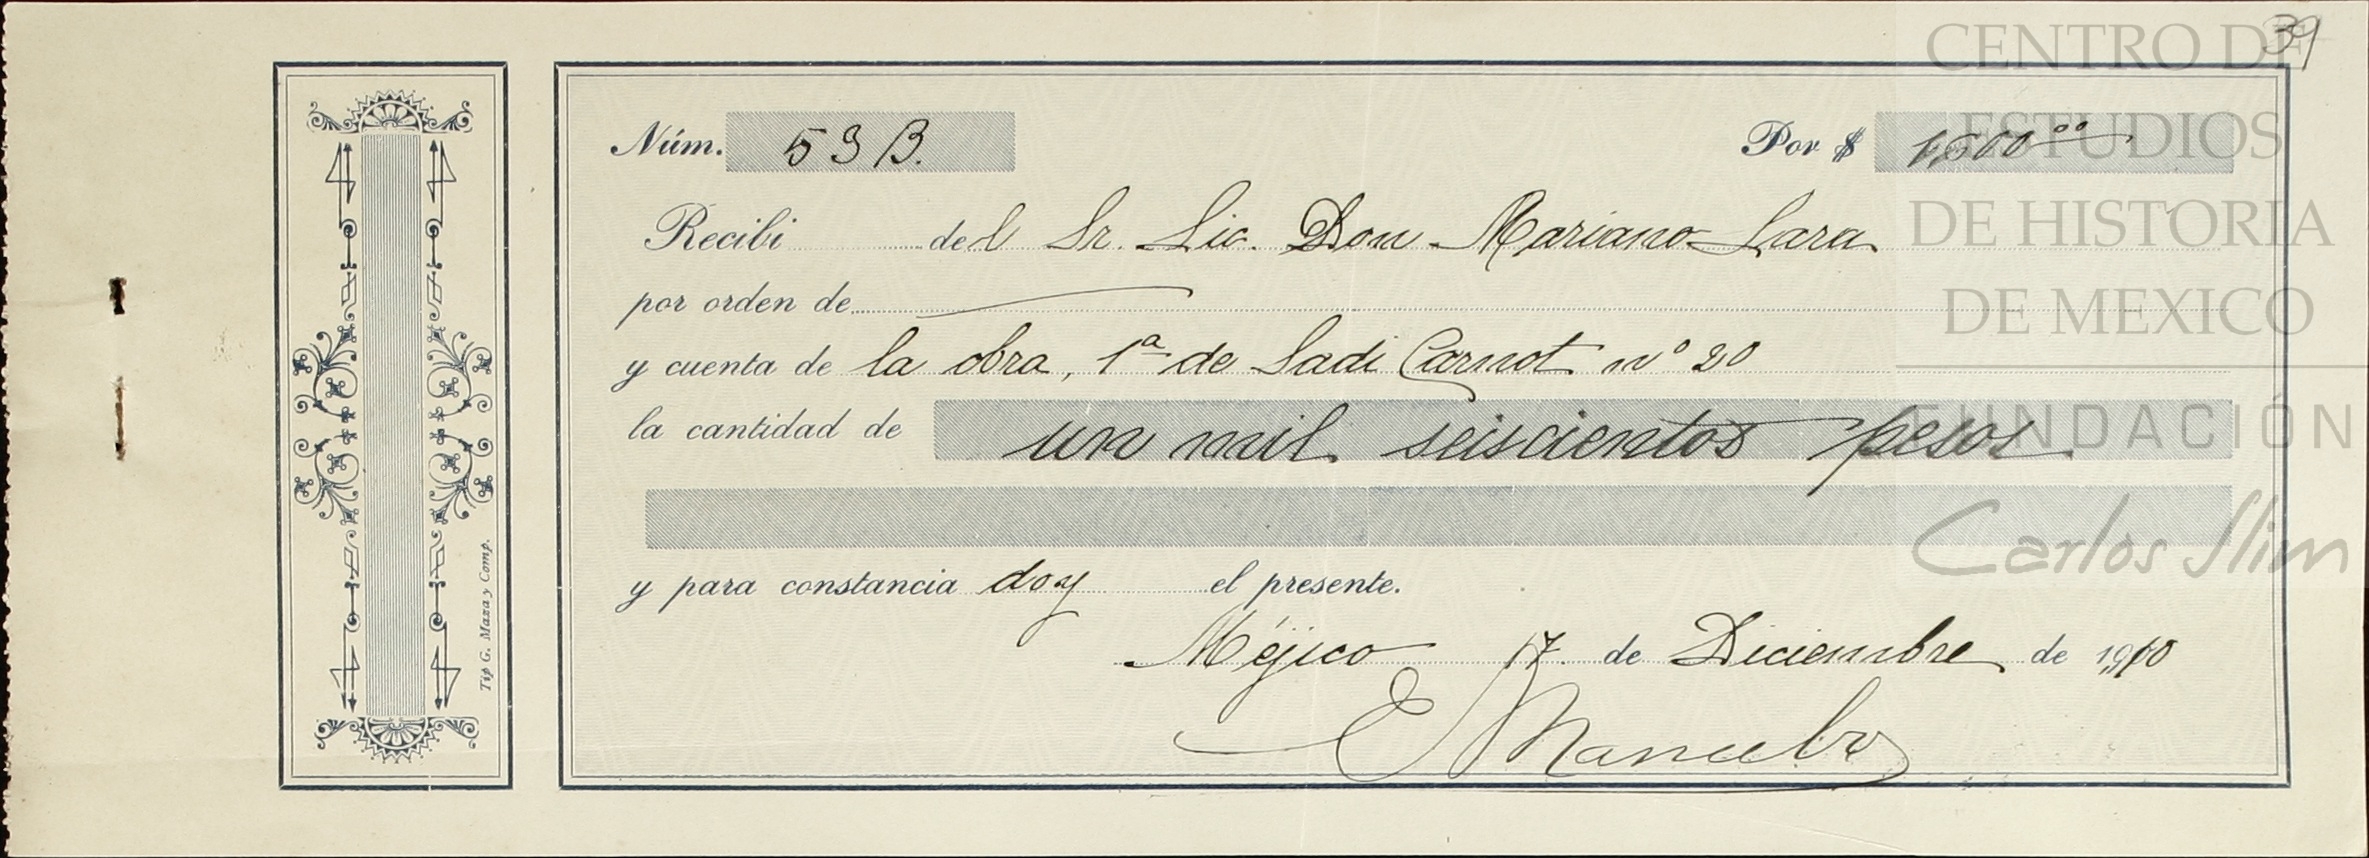 39
CENTRO DE
ESTUDIOS
DE HISTORIA
DE MEXICO
FUNDACIÓN
Carlos Slim
Núm. 53 B. Por $ 1,600 00
Recibi del Sr. Lic. Don Mariano Lara
por orden de
y cuenta de la obra, 1a de Sadi Carnot nº 20
la cantidad de un mil seiscientos pesos
y para constancia doy el presente.
Méjico 17 de Diciembre de 1,910
E
Tip G. Maza y Comp.